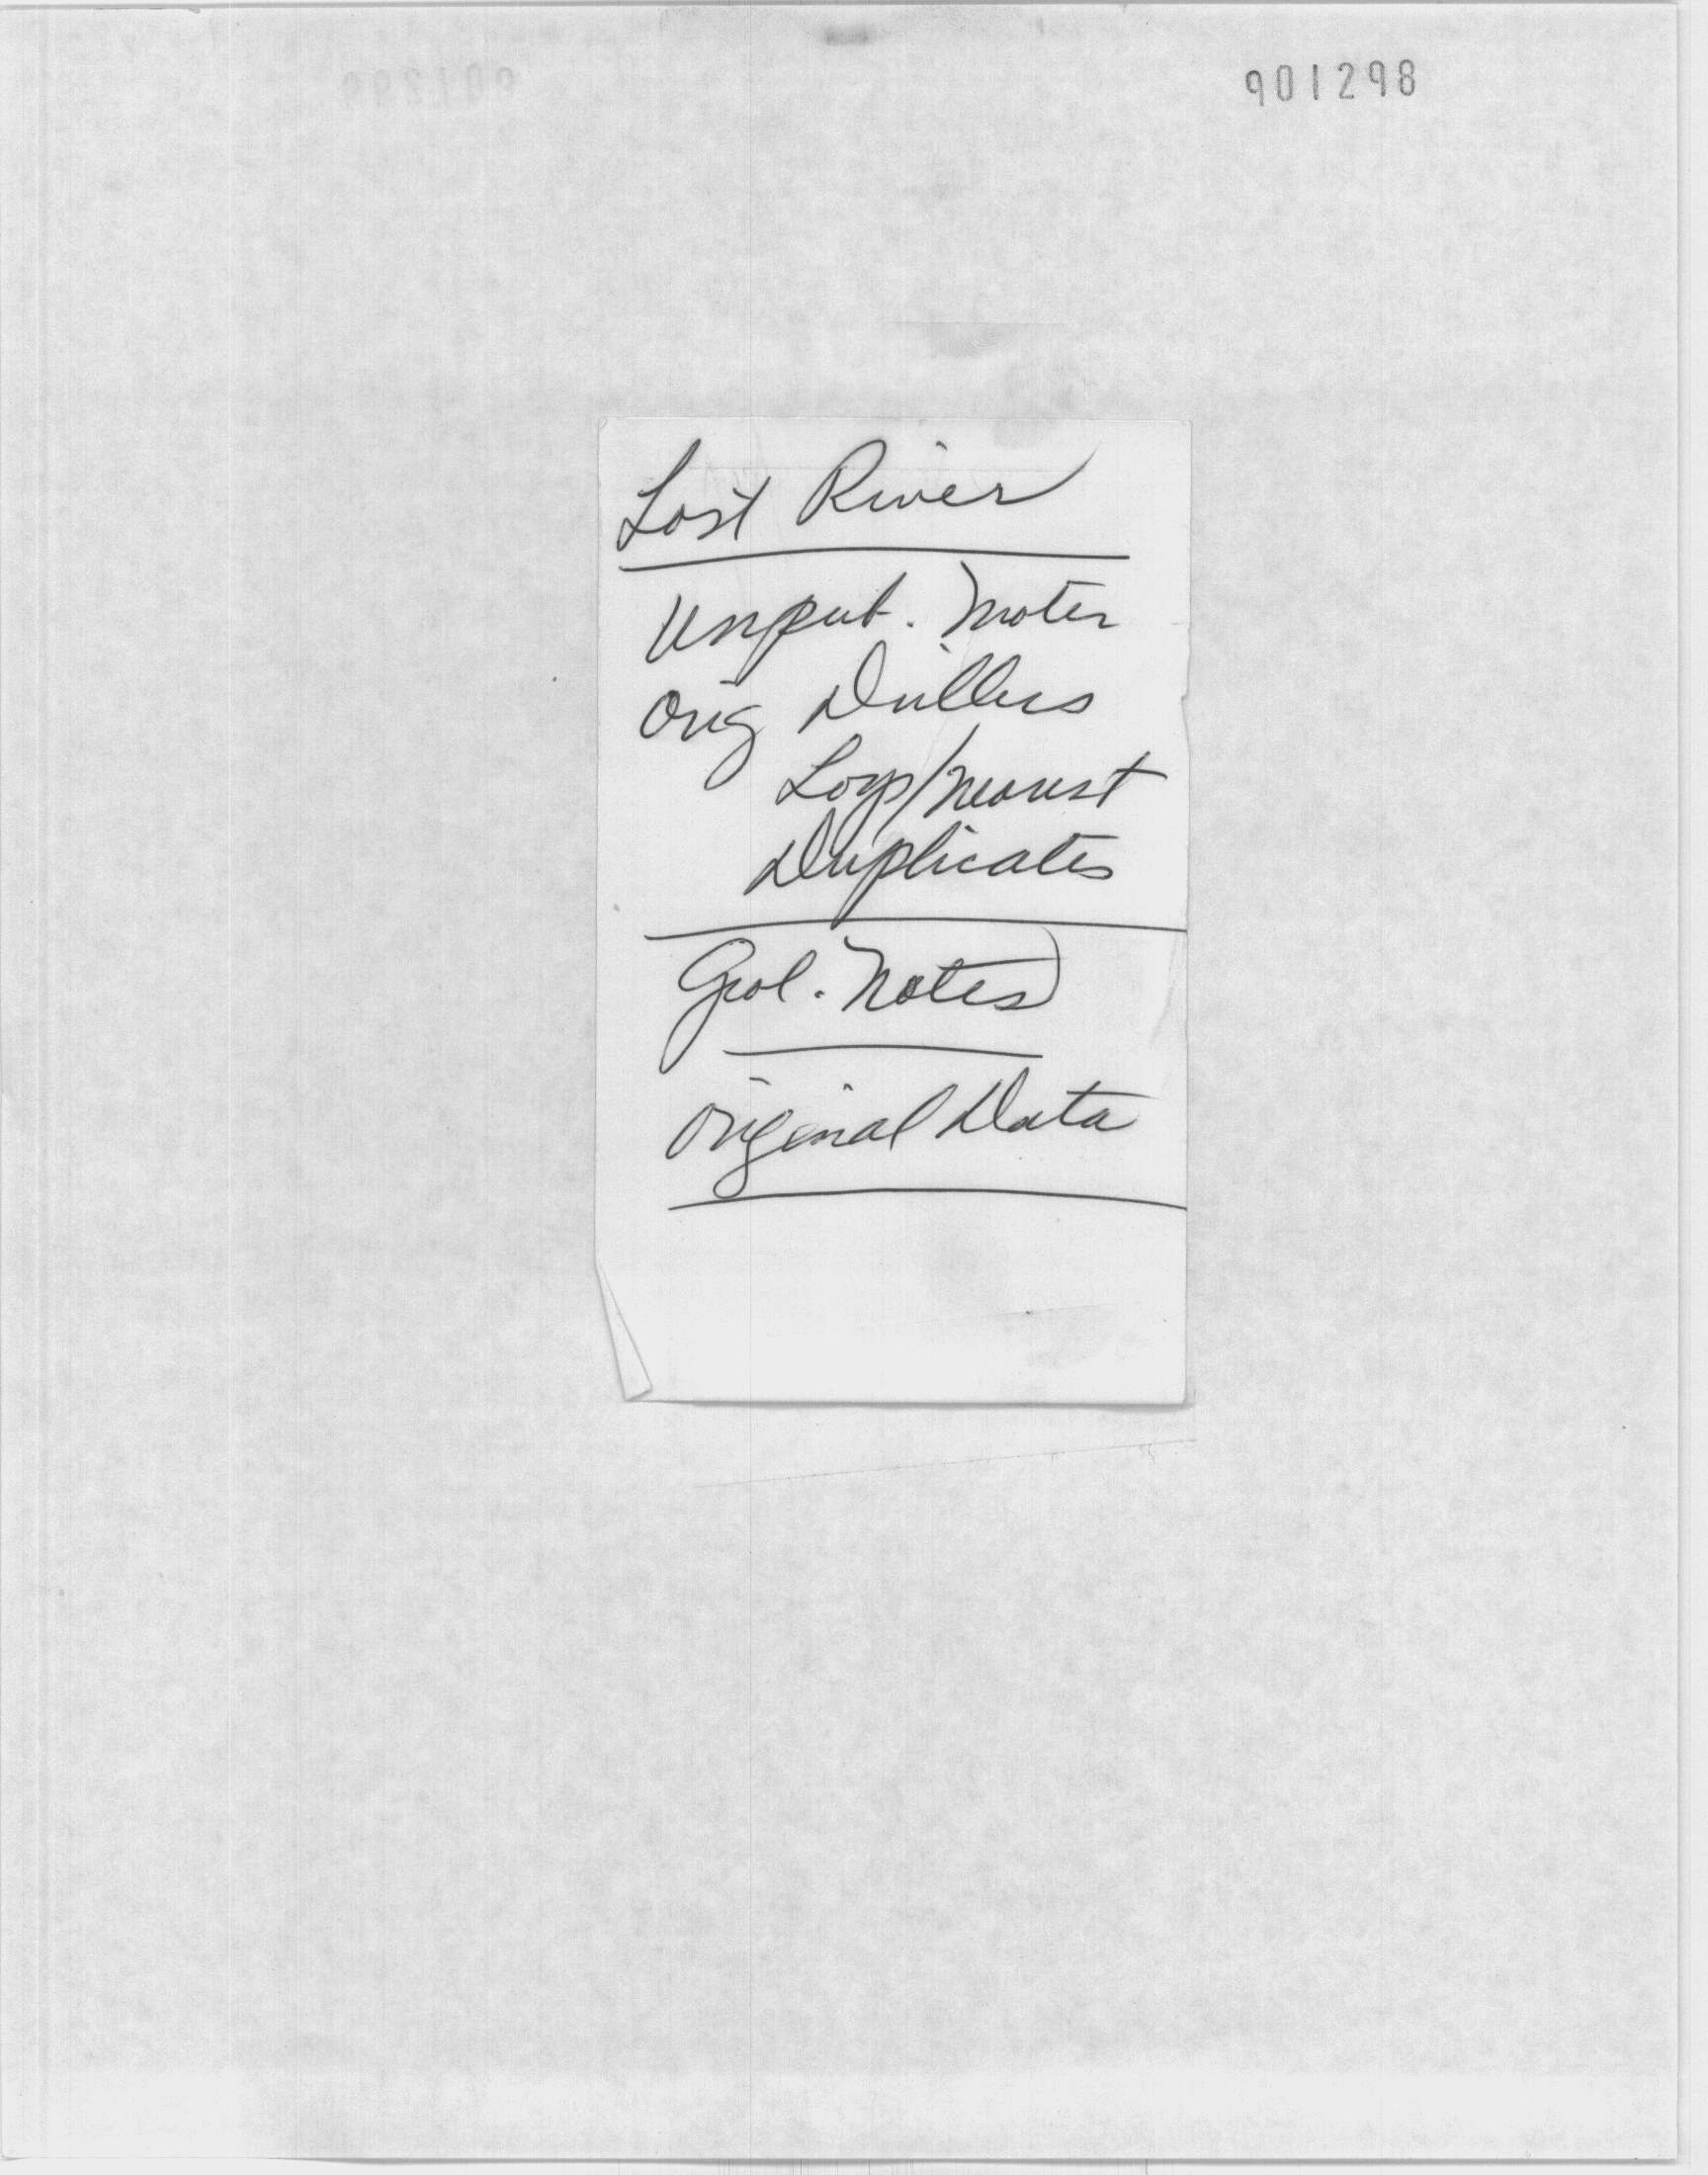 901298
Lost River
Unpub. Notes
Orig Drillers
Logs/nearest
Duplicates
Geol. Notes
Original Data